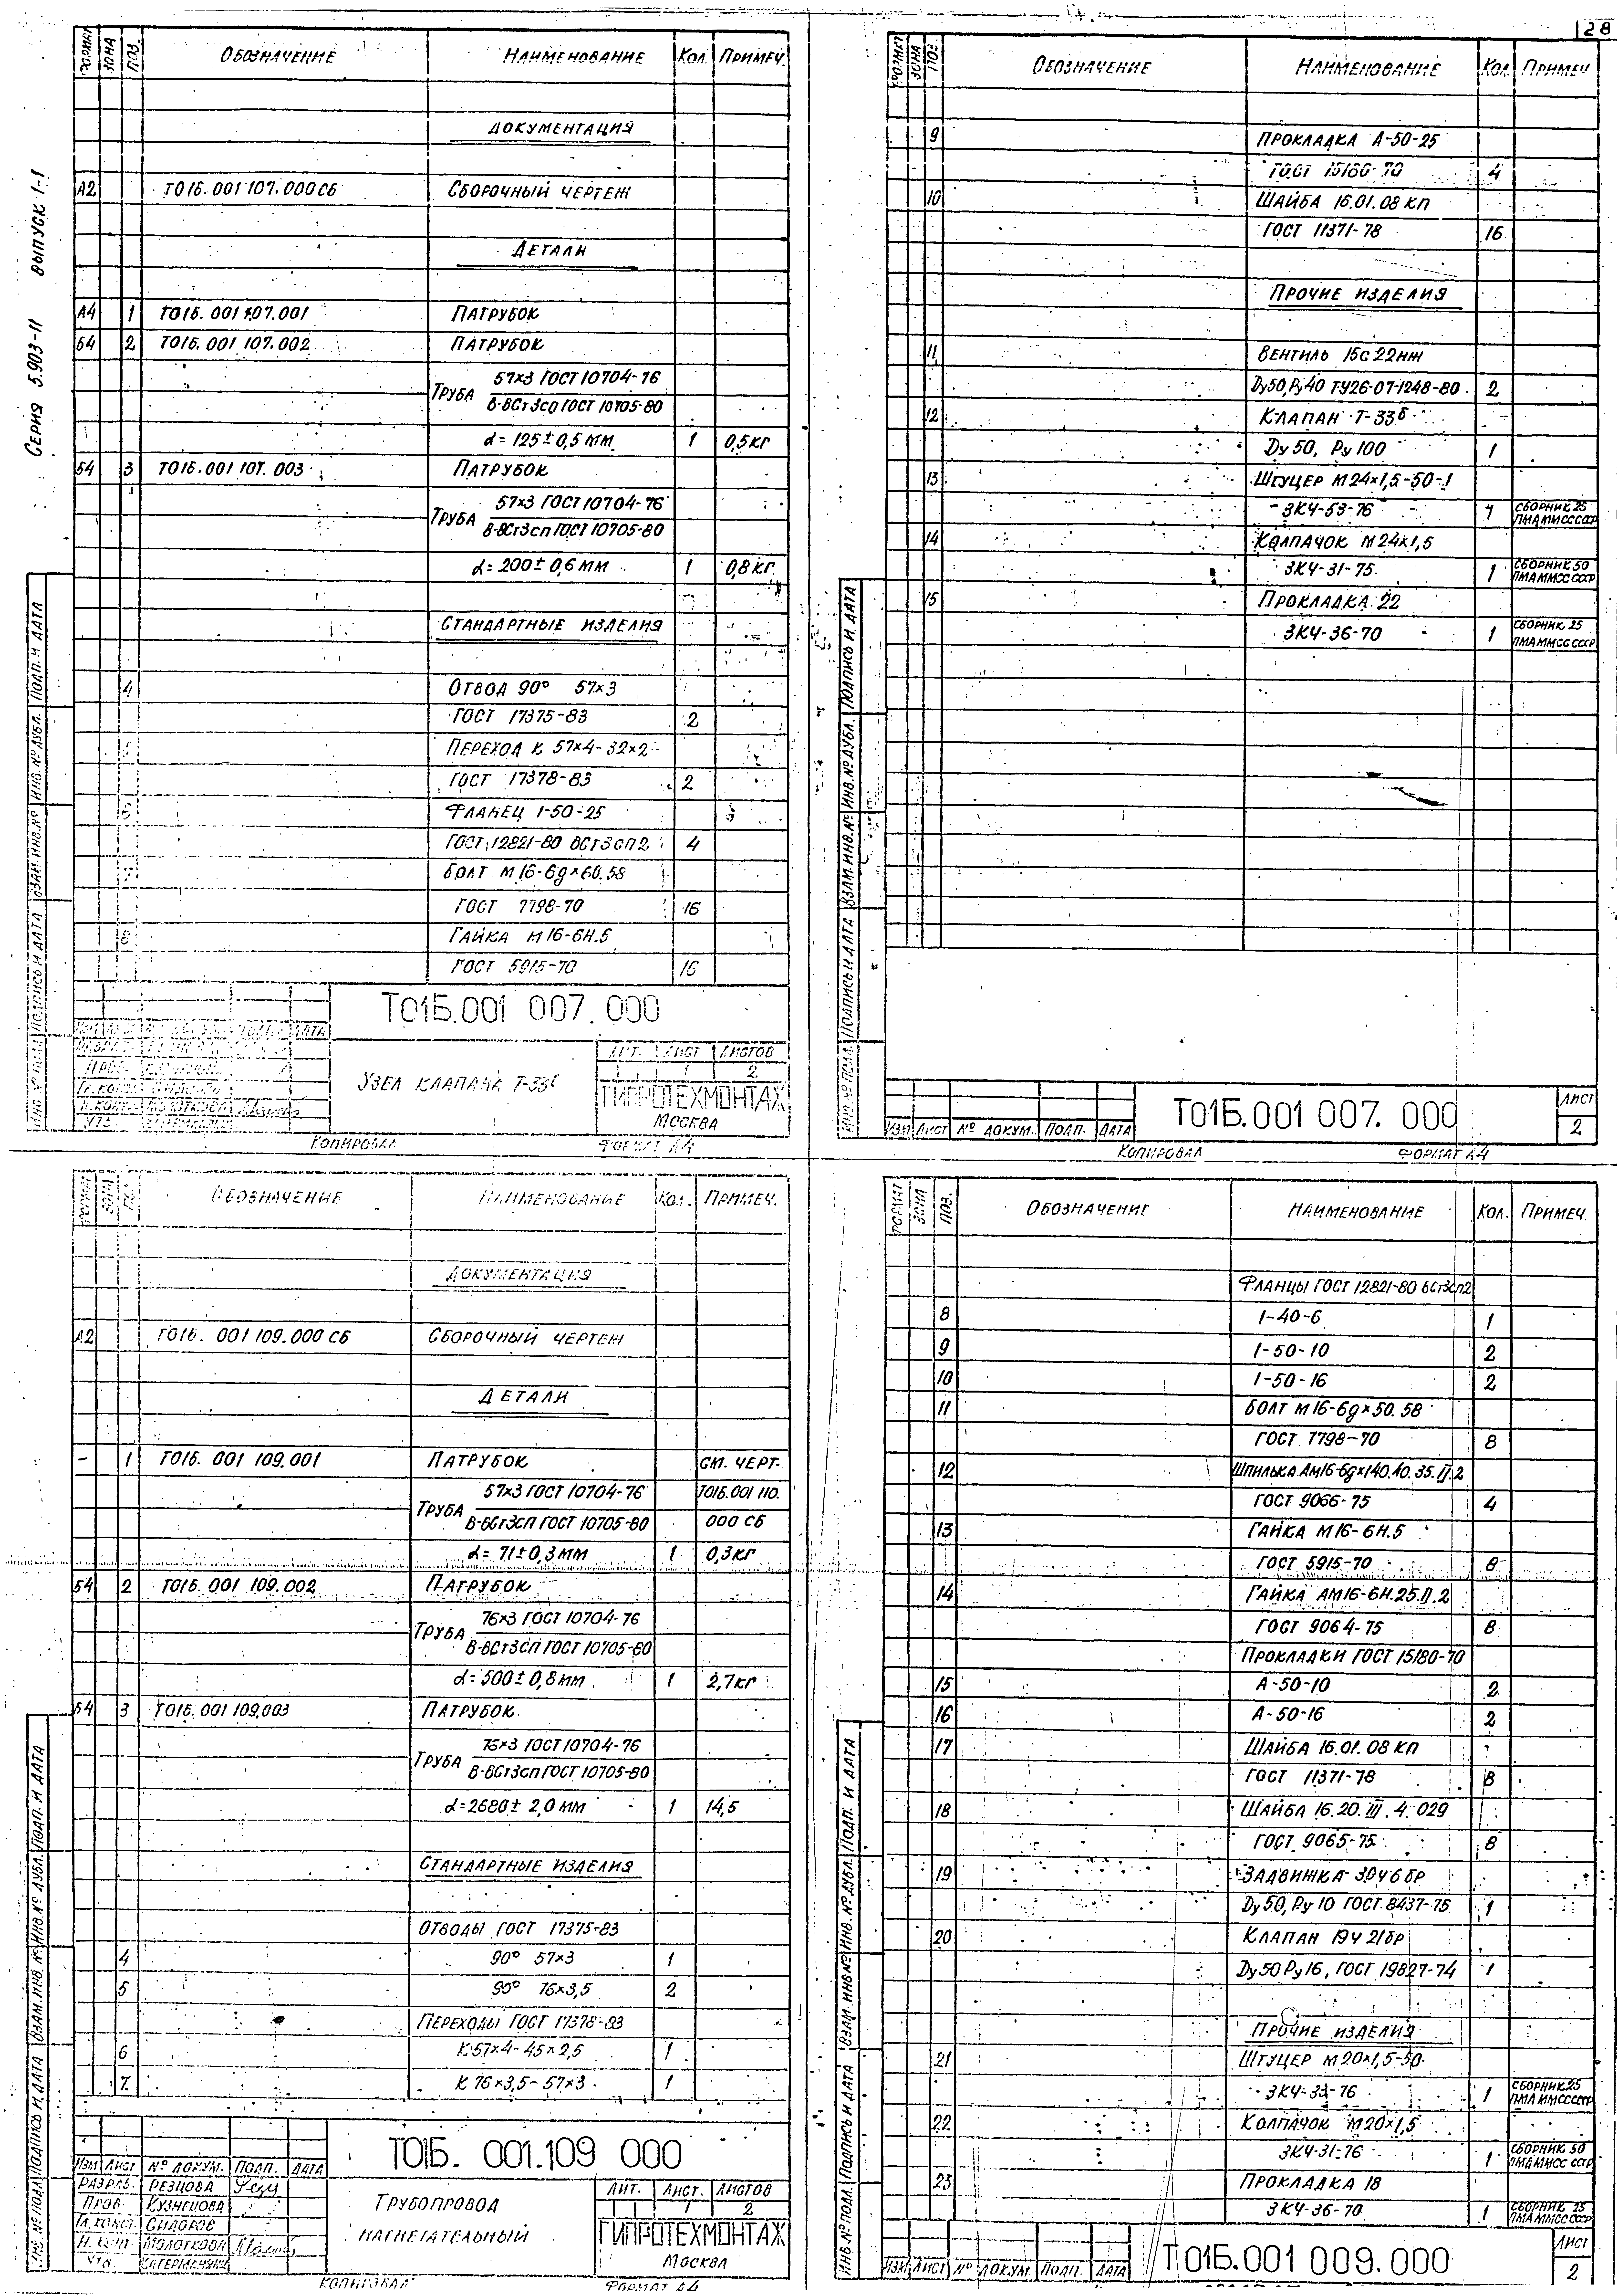 28
Серия 5.903-11 выпуск 1-1
Формат Зона Поз. Обозначение Наименование Кол. Примеч.
Документация
А2 Т01Б.001 107.000 СБ Сборочный чертеж
Детали
А4 1 Т01Б.001 107.001 Патрубок
Б4 2 Т01Б.001 107.002 Патрубок
Труба 57×3 ГОСТ 10704-76
В-ВСт3сп ГОСТ 10705-80
L=125±0,5 мм 1 0,5кг
Б4 3 Т01Б.001 107.003 Патрубок
Труба 57×3 ГОСТ 10704-76
В-ВСт3сп ГОСТ 10705-80
L=200±0,6 мм 1 0,8кг
Стандартные изделия
4 Отвод 90° 57×3
ГОСТ 17375-83 2
5 Переход К 57×4-32×2
ГОСТ 17378-83 2
6 Фланец 1-50-25
ГОСТ 12821-80 ВСт3сп2 4
Болт М16-6g×60.58
ГОСТ 7798-70 16
8 Гайка М16-6Н.5
ГОСТ 5915-70 16
Т01Б.001 007.000
Узел клапана Т-33б
Лит. Лист Листов
1 2
ГИПРОТЕХМОНТАЖ
Москва
Копировал Формат А4
Подп. и дата
Инв. № дубл.
Взам. инв. №
Подпись и дата
Инв. № подл.
Формат Зона Поз. Обозначение Наименование Кол. Примеч.
9 Прокладка А-50-25
ГОСТ 15180-70 4
10 Шайба 16.01.08 кп
ГОСТ 11371-78 16
Прочие изделия
11 Вентиль 15с22нж
Dу50, Ру40 ТУ26-07-1248-80 2
12 Клапан Т-33б
Dу 50, Ру 100 1
13 Штуцер М24×1,5-50-1
ЗК4-53-76 1 Сборник 25 ПМА ММСС СССР
14 Колпачок М24×1,5
ЗК4-31-75 1 Сборник 50 ПМА ММСС СССР
15 Прокладка 22
ЗК4-36-70 1 Сборник 25 ПМА ММСС СССР
Подпись и дата
Инв. № дубл.
Взам. инв. №
Подпись и дата
Инв. № подл.
Изм Лист № докум. Подп. Дата
Т01Б.001 007.000
Лист
2
Копировал Формат А4
Формат Зона Поз. Обозначение Наименование Кол. Примеч.
Документация
А2 Т01Б. 001 109.000 СБ Сборочный чертеж
Детали
- 1 Т01Б. 001 109.001 Патрубок см. черт.
Труба 57×3 ГОСТ 10704-76 Т01Б.001 110.
В-ВСт3сп ГОСТ 10705-80 000 СБ
L=71±0,3 мм 1 0,3кг
Б4 2 Т01Б.001 109.002 Патрубок
Труба 76×3 ГОСТ 10704-76
В-ВСт3сп ГОСТ 10705-80
L=500±0,8мм 1 2,7кг
Б4 3 Т01Б.001 109.003 Патрубок
Труба 76×3 ГОСТ 10704-76
В-ВСт3сп ГОСТ 10705-80
L=2680±2,0 мм 1 14,5
Стандартные изделия
Отводы ГОСТ 17375-83
4 90° 57×3 1
5 90° 76×3,5 2
Переходы ГОСТ 17378-83
6 К 57×4-45×2,5 1
7. К 76×3,5-57×3 1
Подп. и дата
Инв. № дубл.
Взам. инв. №
Подпись и дата
Инв. № подл.
Изм Лист № докум. Подп. Дата
Разраб. Резцова
Пров. Кузнецова
Гл.конст. Сидоров
Н. конт. Молоткова
Утв.
Т01Б. 001.109 000
Трубопровод
нагнетательный
Лит. Лист. Листов
1 2
ГИПРОТЕХМОНТАЖ
Москва
Копировал Формат А4
Формат Зона Поз. Обозначение Наименование Кол. Примеч.
Фланцы ГОСТ 12821-80 ВСт3сп2
8 1-40-6 1
9 1-50-10 2
10 1-50-16 2
11 Болт М16-6g×50.58
ГОСТ 7798-70 8
12 Шпилька АМ16-6g×140.40.35.II.2
ГОСТ 9066-75 4
13 Гайка М16-6Н.5
ГОСТ 5915-70 8
14 Гайка АМ16-6Н.25.II.2
ГОСТ 9064-75 8
Прокладки ГОСТ 15180-70
15 А-50-10 2
16 А-50-16 2
17 Шайба 16.01.08 кп
ГОСТ 11371-78 8
18 Шайба 16.20.III.4.029
ГОСТ 9065-75 8
19 Задвижка 30ч6бр
Dу50, Ру 10 ГОСТ 8437-75 1
20 Клапан 19ч21бр
Dу50 Ру16, ГОСТ 19827-74 1
Прочие изделия
21 Штуцер М20×1,5-50
ЗК4-33-76 1 Сборник 25 ПМА ММСС СССР
22 Колпачок М20×1,5
ЗК4-31-76 1 Сборник 50 ПМА ММСС СССР
23 Прокладка 18
ЗК4-36-70 1 Сборник 25 ПМА ММСС СССР
Подп. и дата
Инв. № дубл.
Взам. инв №
Подпись и дата
Инв. № подл.
Изм Лист № докум. Подп. Дата
Т01Б.001 009.000
Лист
2